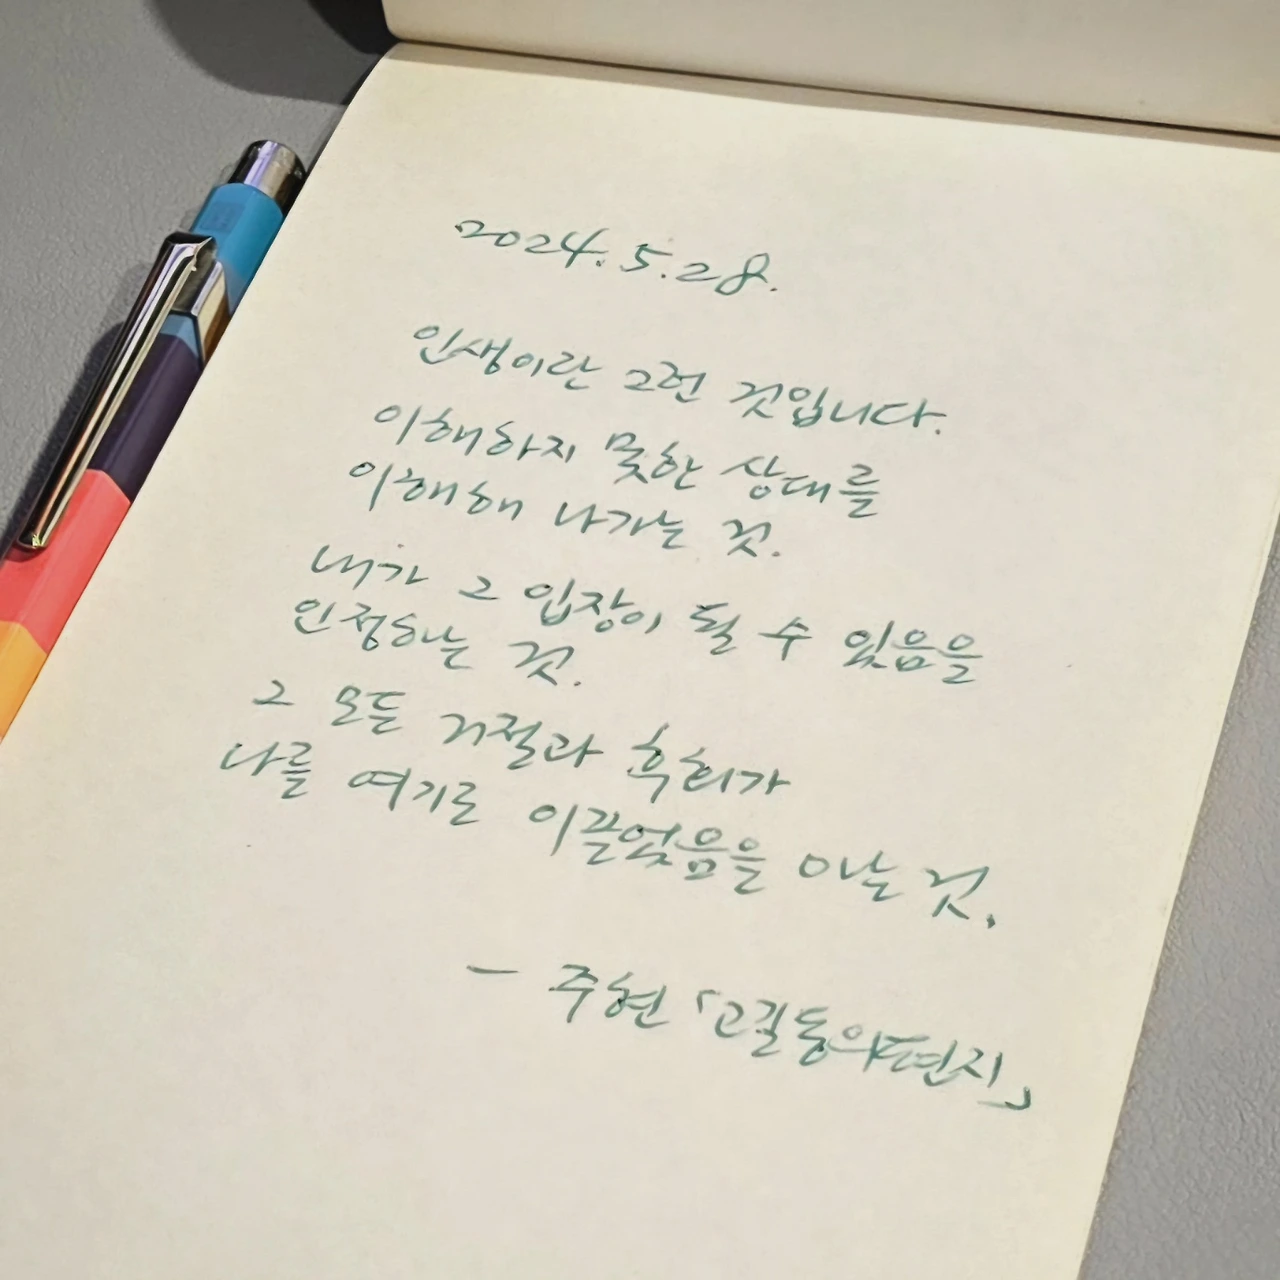 2024. 5. 28.
인생이란 그런 것입니다.
이해하지 못한 상대를
이해해 나가는 것.
내가 그 입장이 될 수 있음을
인정하는 것.
그 모든 거절과 후회가
나를 여기로 이끌었음을 아는 것.
- 주현 「고길동의 편지」